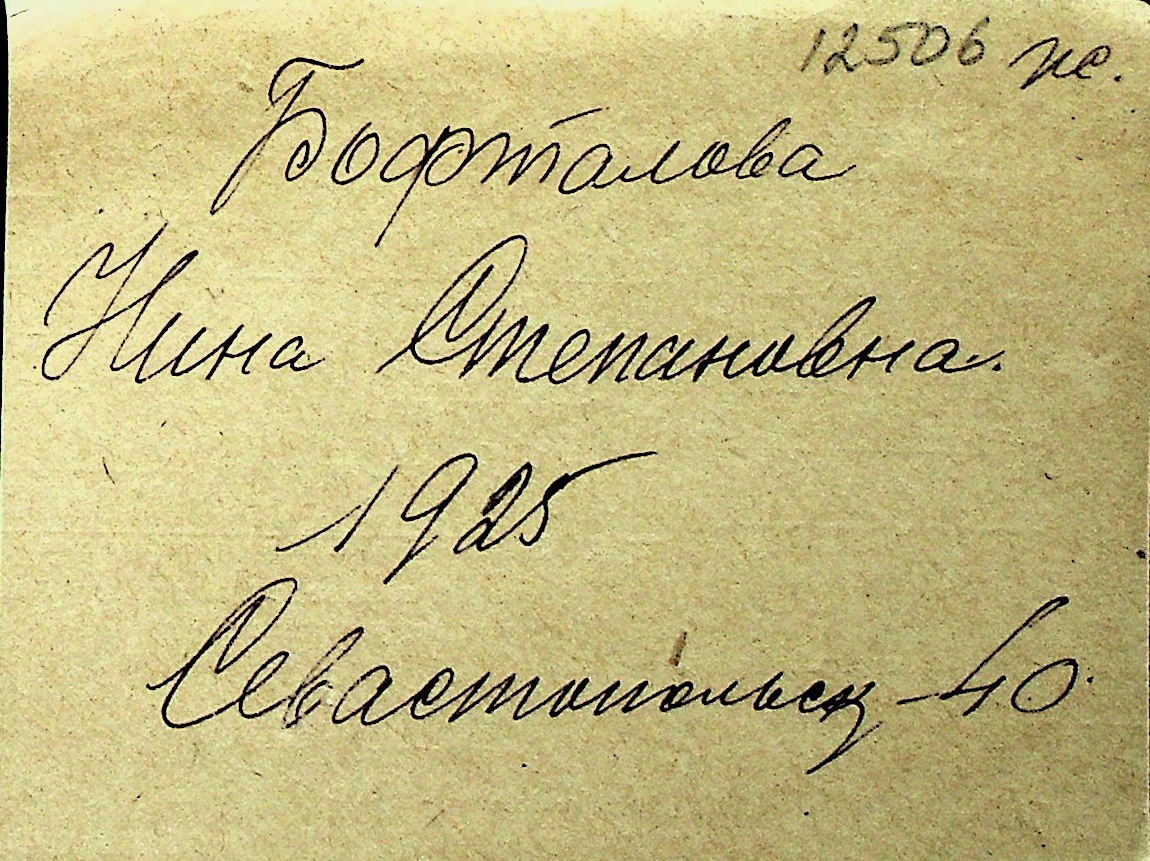 12506 ж.
Бофталова
Нина Степановна.
1925
Севастопольск – 40